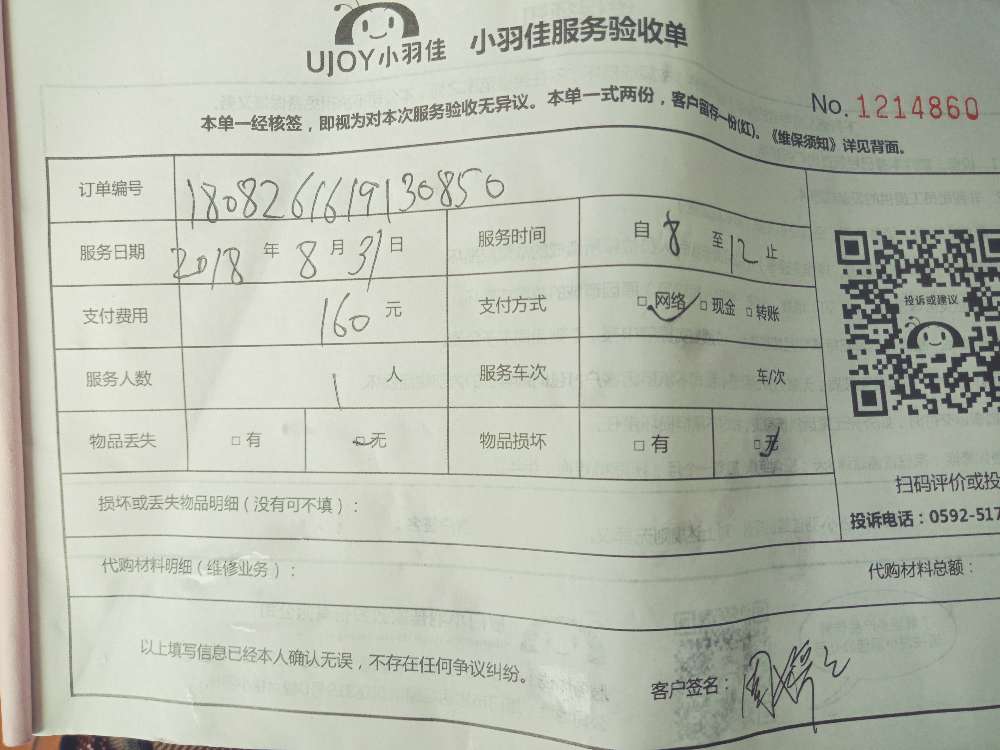 UJOY小羽佳 小羽佳服务验收单
No. 1214860
本单一经核签，即视为对本次服务验收无异议。本单一式两份，客户留存一份(红)。《维保须知》详见背面。
订单编号 1808261619130850
服务日期 2018 年 8 月 31 日 服务时间 自 8 至 12 止
支付费用 160 元 支付方式 □网络 □现金 □转账
服务人数 1 人 服务车次 车/次
物品丢失 □有 □无 物品损坏 □有 □无
投诉或建议
扫码评价或投
投诉电话：0592-517
损坏或丢失物品明细（没有可不填）：
代购材料明细（维修业务）： 代购材料总额：
以上填写信息已经本人确认无误，不存在任何争议纠纷。
客户签名：